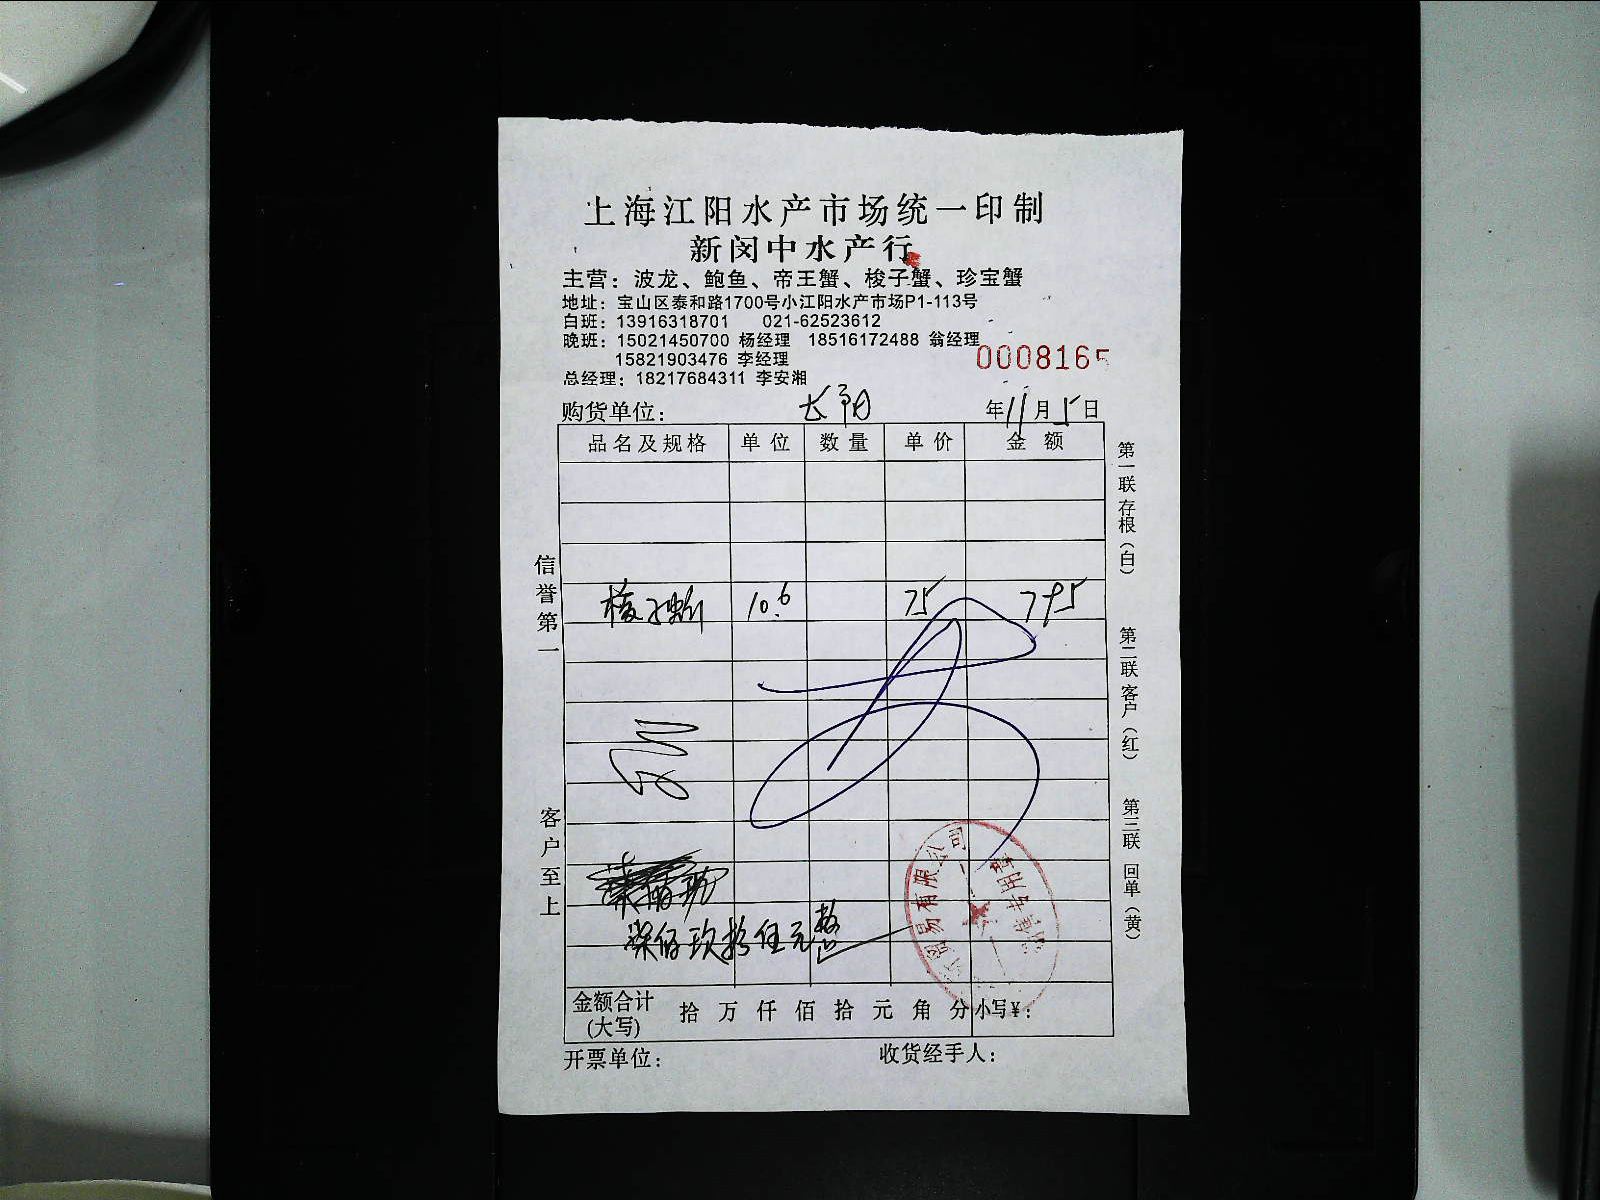 上海江阳水产市场统一印制
新闵中水产行
主营：波龙、鲍鱼、帝王蟹、梭子蟹、珍宝蟹
地址：宝山区泰和路1700号小江阳水产市场P1-113号
白班：13916318701 021-62523612
晚班：15021450700 杨经理 18516172488 翁经理
15821903476 李经理
0008165
总经理：18217684311 李安湘
购货单位： 长阳 年11月5日
品名及规格 单位 数量 单价 金额
梭子蟹 10.6 75 795
柒佰玖拾伍元整
金额合计(大写) 拾 万 仟 佰 拾 元 角 分 小写￥：
开票单位： 收货经手人：
信誉第一
客户至上
第一联 存根（白）
第二联 客户（红）
第三联 回单（黄）
贸易有限公司
专用章